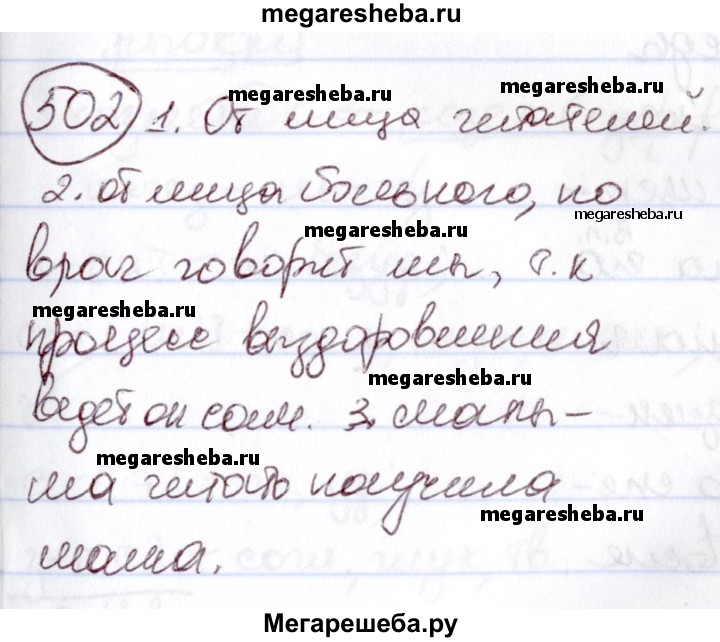 megaresheba.ru
502 1. От лица читателей.
2. от лица больного, но
врач говорит мы, т.к
процесс выздоровления
ведет он сам. 3. малы-
ша читать научила
мама.
megaresheba.ru
megaresheba.ru
megaresheba.ru
megaresheba.ru
megaresheba.ru
megaresheba.ru
megaresheba.ru
megaresheba.ru
Мегарешеба.ру